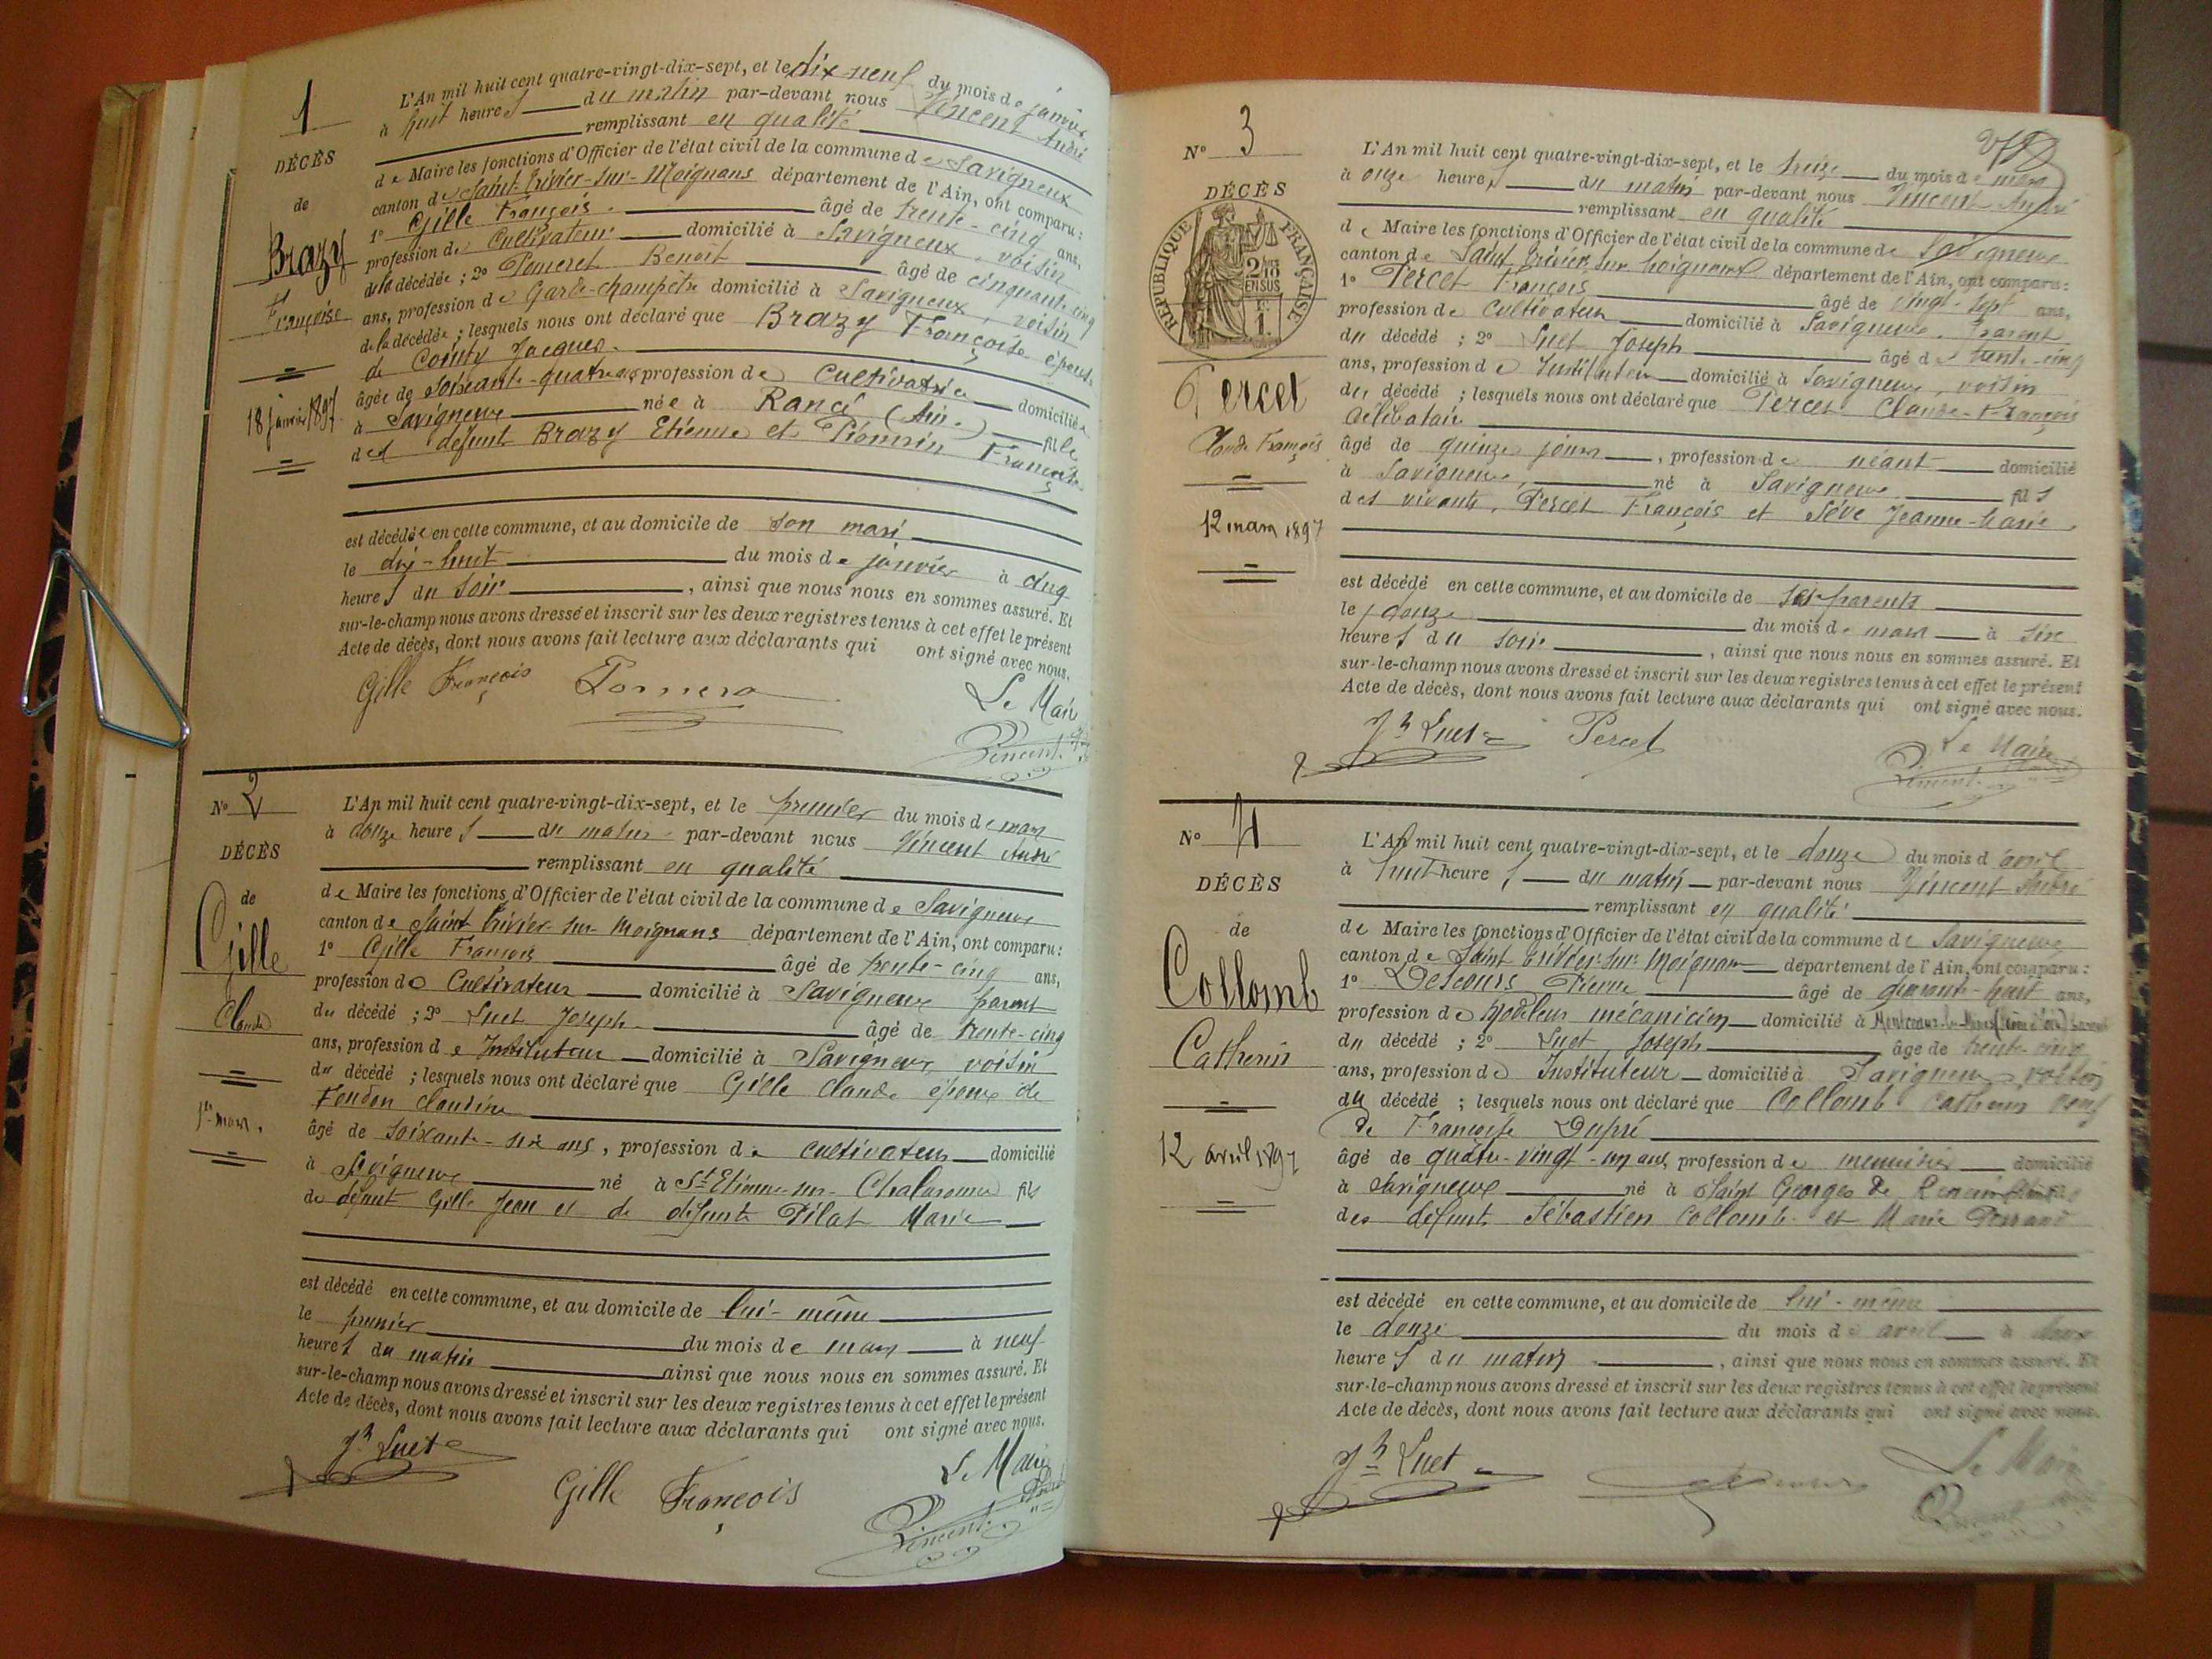 1
DÉCÈS
de
Brazy
Françoise
18 janvier 1897
L'An mil huit cent quatre-vingt-dix-sept, et le dix neuf du mois de janvier
à huit heures du matin par-devant nous Vincent André
remplissant en qualité
de Maire les fonctions d'Officier de l'état civil de la commune de Savigneux
canton de Saint-Trivier-sur-Moignans département de l'Ain, ont comparu:
1º Gille François âgé de trente-cinq ans,
profession de Cultivateur domicilié à Savigneux, voisin
de la décédée ; 2º Pomeret Benoit âgé de cinquante cinq
ans, profession de Garde-champêtre domicilié à Savigneux, voisin
de la décédée ; lesquels nous ont déclaré que Brazy Françoise épouse
de Jacques
âgée de soixante-quatre ans profession de Cultivatrice domiciliée
à Savigneux née à Rancé (Ain) fille
des défunt Brazy Etienne et Françoise
est décédée en cette commune, et au domicile de son mari
le dix-huit du mois de janvier à cinq
heures du soir, ainsi que nous nous en sommes assuré. Et
sur-le-champ nous avons dressé et inscrit sur les deux registres tenus à cet effet le présent
Acte de décès, dont nous avons fait lecture aux déclarants qui ont signé avec nous.
Gille François
Le Maire
Vincent
Nº 2
DÉCÈS
de
Gille
Claude
1er mars.
L'An mil huit cent quatre-vingt-dix-sept, et le premier du mois de mars
à onze heures du matin par-devant nous Vincent André
remplissant en qualité
de Maire les fonctions d'Officier de l'état civil de la commune de Savigneux
canton de Saint Trivier-sur-Moignans département de l'Ain, ont comparu:
1º Gille François âgé de trente-cinq ans,
profession de Cultivateur domicilié à Savigneux parent
du décédé ; 2º Luet Joseph âgé de trente-cinq
ans, profession de Instituteur domicilié à Savigneux, voisin
du décédé ; lesquels nous ont déclaré que Gille Claude époux de
Claudine
âgé de soixante-six ans, profession de cultivateur domicilié
à Savigneux né à St Etienne-sur-Chalaronne fils
de défunt Gille Jean et de défunte Pilat Marie
est décédé en cette commune, et au domicile de lui-même
le premier du mois de mars à neuf
heures du matin ainsi que nous nous en sommes assuré. Et
sur-le-champ nous avons dressé et inscrit sur les deux registres tenus à cet effet le présent
Acte de décès, dont nous avons fait lecture aux déclarants qui ont signé avec nous.
Jh Luet
Gille François
Le Maire
Vincent
Nº 3
DÉCÈS
RÉPUBLIQUE FRANÇAISE
2/10 EN SUS
1
Percet
Claude François
12 mars 1897
L'An mil huit cent quatre-vingt-dix-sept, et le treize du mois de mars
à onze heures du matin par-devant nous Vincent André
remplissant en qualité
de Maire les fonctions d'Officier de l'état civil de la commune de Savigneux
canton de Saint Trivier sur Moignans département de l'Ain, ont comparu:
1º Percet François âgé de vingt-sept ans,
profession de Cultivateur domicilié à Savigneux, parent
du décédé ; 2º Luet Joseph âgé de trente-cinq
ans, profession de Instituteur domicilié à Savigneux, voisin
du décédé ; lesquels nous ont déclaré que Percet Claude-François
célibataire
âgé de quinze jours, profession de néant domicilié
à Savigneux, né à Savigneux fils
des vivants, Percet François et Sève Jeanne-Marie
est décédé en cette commune, et au domicile de ses parents
le douze du mois de mars à six
heures du soir, ainsi que nous nous en sommes assuré. Et
sur-le-champ nous avons dressé et inscrit sur les deux registres tenus à cet effet le présent
Acte de décès, dont nous avons fait lecture aux déclarants qui ont signé avec nous.
Jh Luet Percet
Le Maire
Vincent
Nº 4
DÉCÈS
de
Collomb
Catherin
12 avril 1897
L'An mil huit cent quatre-vingt-dix-sept, et le douze du mois d'avril
à huit heures du matin par-devant nous Vincent André
remplissant en qualité
de Maire les fonctions d'Officier de l'état civil de la commune de Savigneux
canton de Saint Trivier-sur-Moignans département de l'Ain, ont comparu:
1º Descours Pierre âgé de quarante-huit ans,
profession de Modeleur mécanicien domicilié à Montceau-les-Mines
du décédé ; 2º Luet Joseph âgé de trente-cinq
ans, profession de Instituteur domicilié à Savigneux, voisin
du décédé ; lesquels nous ont déclaré que Collomb Catherin veuf
de Françoise Dupré
âgé de quatre-vingt-un ans, profession de menuisier domicilié
à Savigneux né à Saint Georges de
des défunts Sébastien Collomb et Marie
est décédé en cette commune, et au domicile de lui-même
le douze du mois de avril à deux
heures du matin, ainsi que nous nous en sommes assuré. Et
sur-le-champ nous avons dressé et inscrit sur les deux registres tenus à cet effet le présent
Acte de décès, dont nous avons fait lecture aux déclarants qui ont signé avec nous.
Jh Luet
Le Maire
Vincent